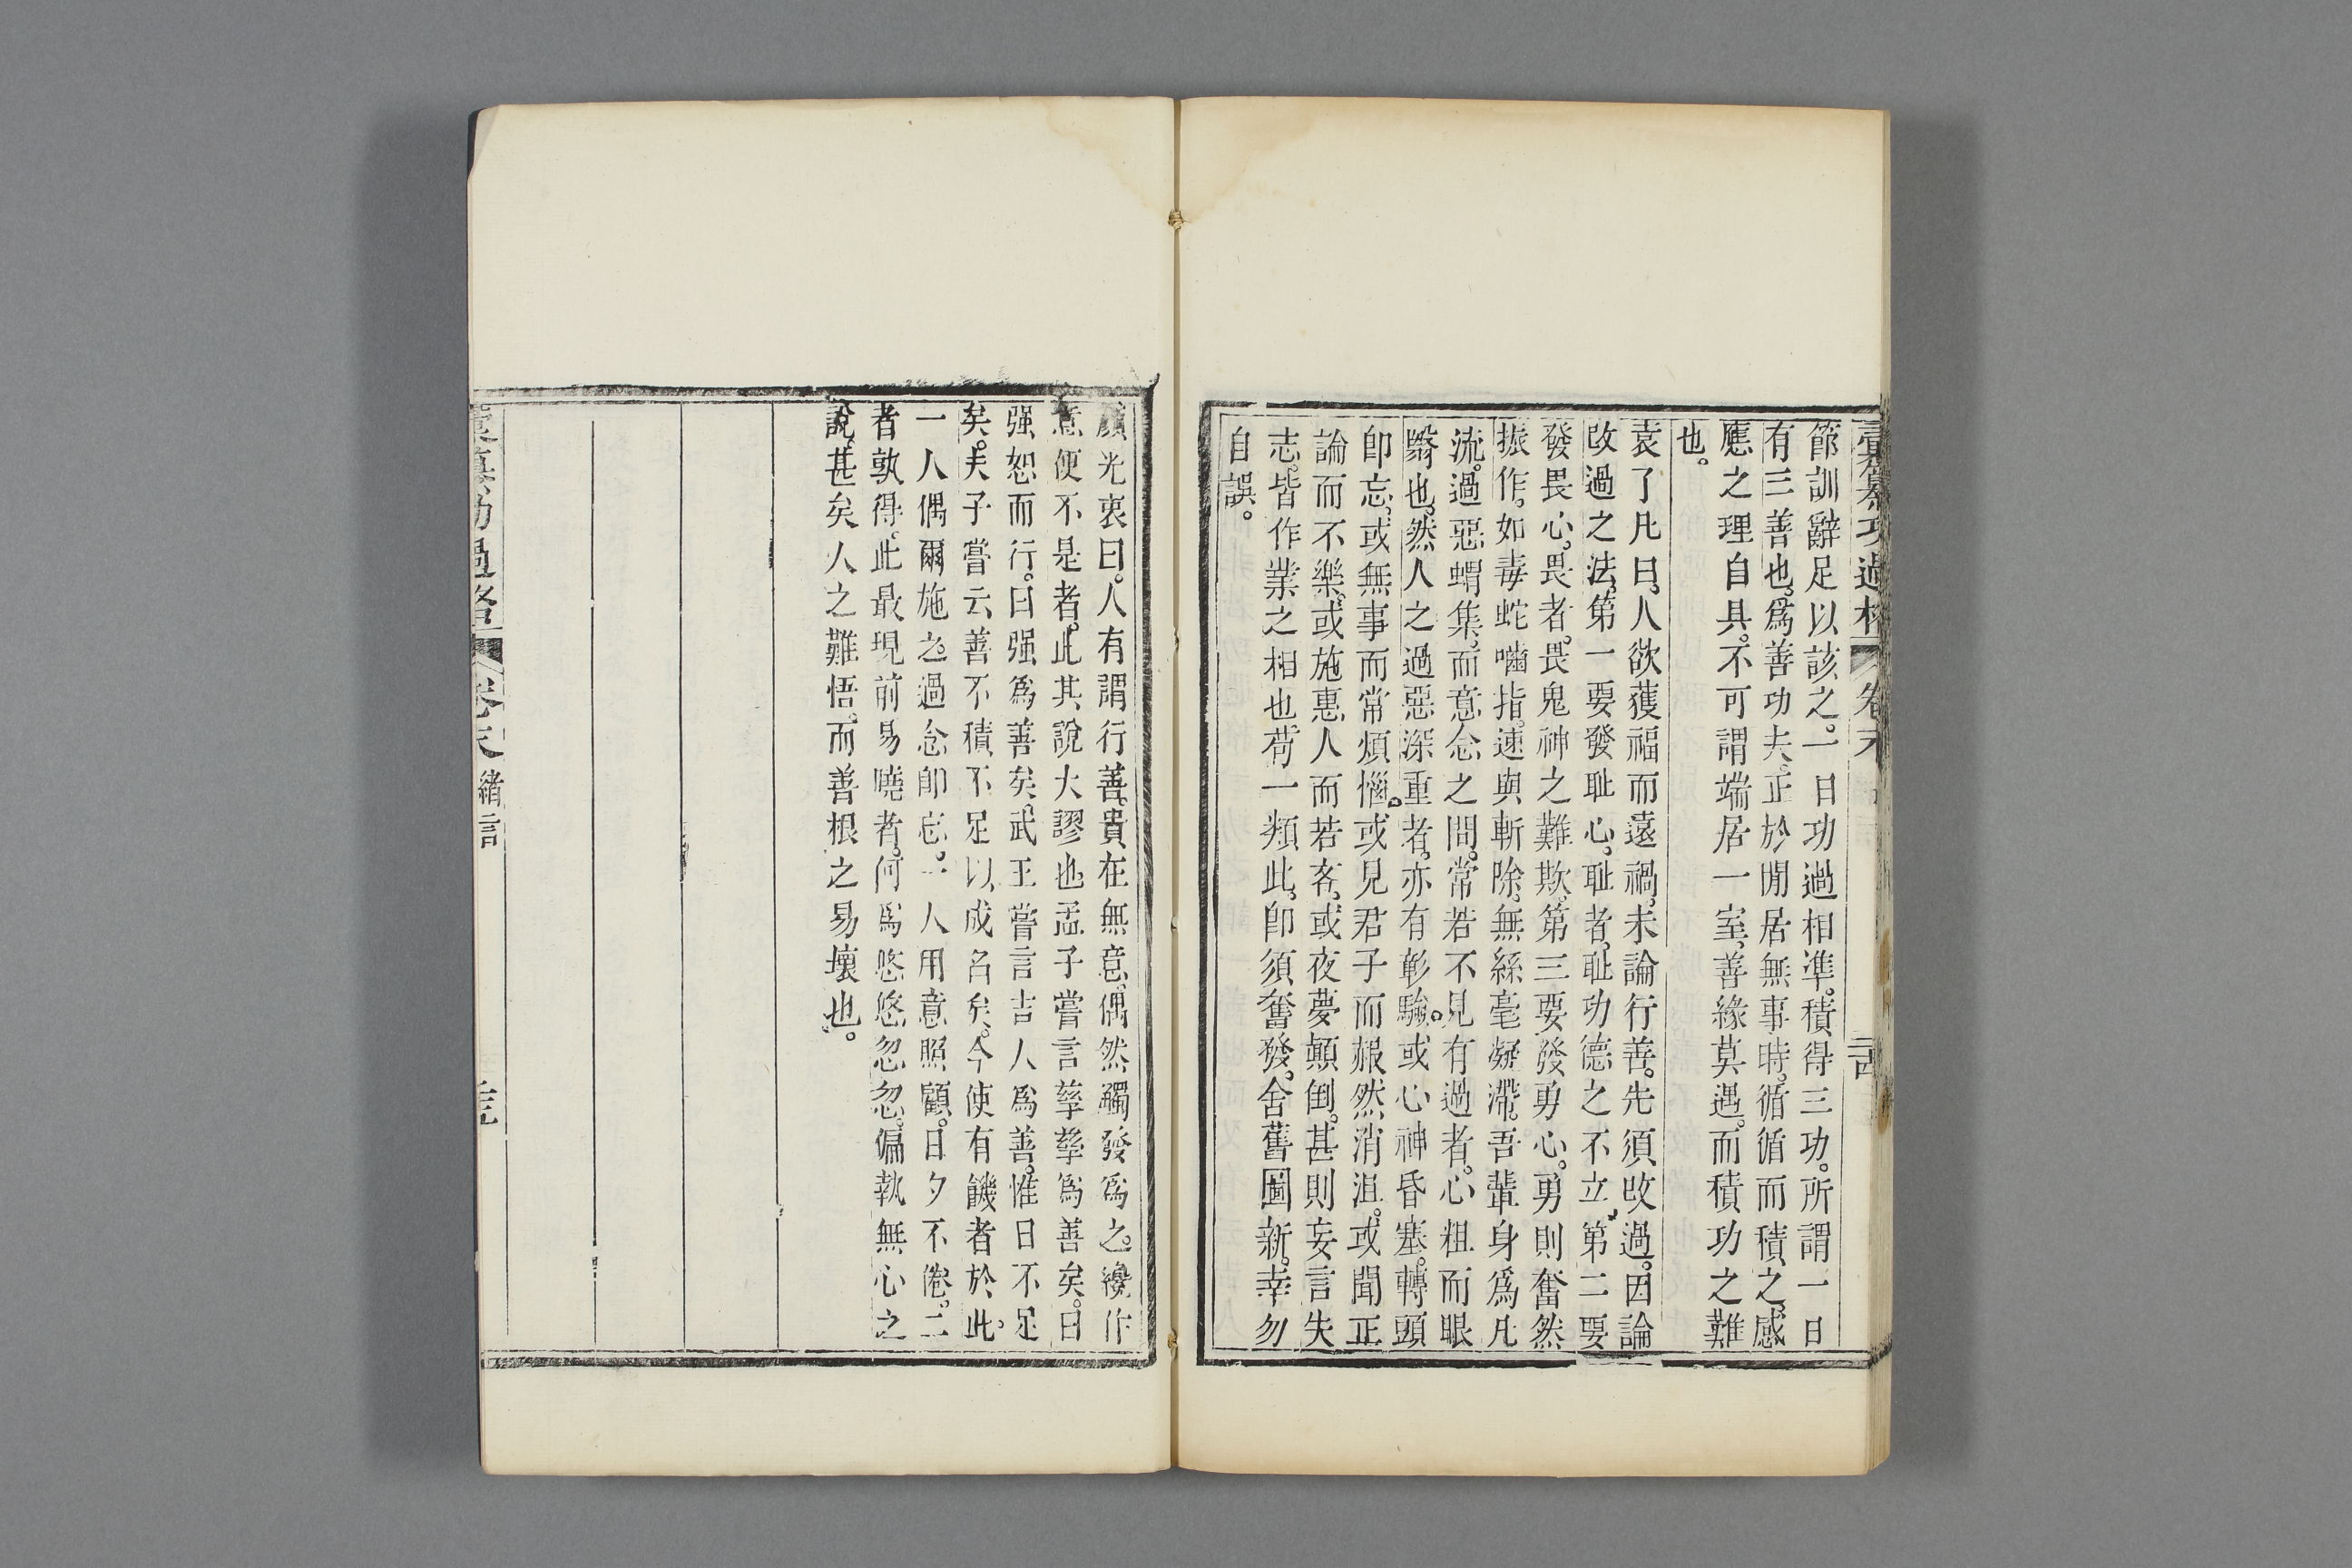 彙纂功過格 卷末
節訓辭足以該之。一日功過相準。積得三功。所謂一日
有三善也。爲善功夫。正於閒居無事時。循循而積之。感
應之理自具。不可謂端居一室。善緣莫遇。而積功之難
也。
袁了凡曰。人欲獲福而遠禍。未論行善。先須改過。因論
改過之法。第一要發耻心。耻者。耻功德之不立。第二要
發畏心。畏者。畏鬼神之難欺。第三要發勇心。勇則奮然
振作。如毒蛇嚙指。速與斬除。無絲毫凝滯。吾輩身爲凡
流。過惡蝟集。而意念之間。常若不見有過者。心粗而眼
翳也。然人之過惡深重者。亦有彰驗。或心神昏塞。轉頭
卽忘。或無事而常煩惱。或見君子而赧然消沮。或聞正
論而不樂。或施惠人而若吝。或夜夢顛倒。甚則妄言失
志。皆作業之相也。苟一類此。卽須奮發。舍舊圖新。幸勿
自誤。
顏光衷曰。人有謂行善。貴在無意。偶然觸發爲之。纔作
意便不是者。此其說大謬也。孟子嘗言孳孳爲善矣。曰
强恕而行。曰强爲善矣。武王嘗言吉人爲善。惟日不足
矣。夫子嘗云。善不積不足以成名矣。今使有饑者於此。
一人偶爾施之。過念卽忘。一人用意照顧。日夕不倦。二
者孰得。此最現前易曉者。何爲悠悠忽忽。偏執無心之
說。甚矣人之難悟。而善根之易壞也。
彙纂功過格 卷末 緒言